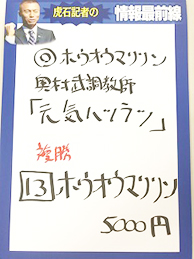 虎石記者の
情報最前線
◎ホウオウマリリン
奥村武調教師
「元気ハツラツ」
複勝
13 ホウオウマリリン
5000円